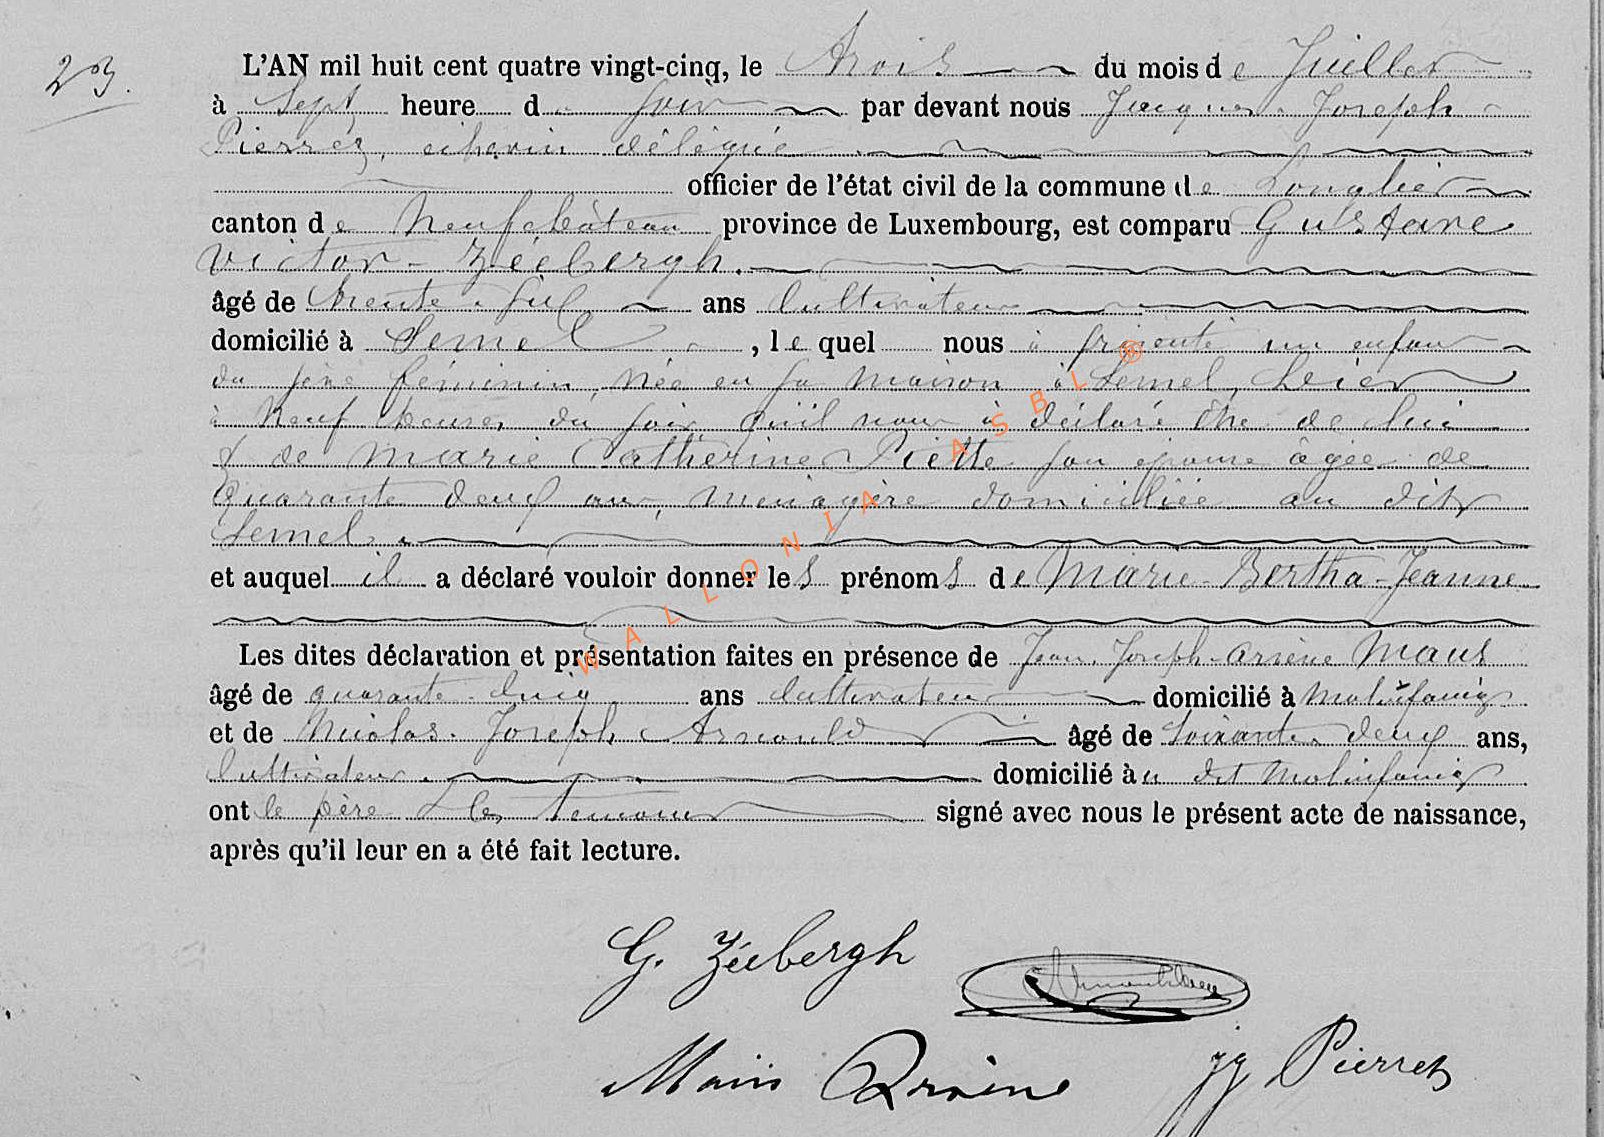 23.
L'AN mil huit cent quatre vingt-cinq, le Trois du mois de Juillet
à Sept heure d soir par devant nous Jacques Joseph
Pierret, echevin délégué
officier de l'état civil de la commune de Longlier
canton de Neufchâteau province de Luxembourg, est comparu Gustave
Victor Zéebergh.
âgé de trente ans Cultivateur
domicilié à Semel, le quel nous à présenté un enfant
du sexe féminin, née en sa maison à Semel, hier
à neuf heures du soir qu'il nous à déclaré être de lui
& de Marie Catherine Piette son épouse âgée de
quarante deux ans, menagère domiciliée au dit
Semel.
et auquel il a déclaré vouloir donner les prénoms de Marie-Bertha-Jeanne
Les dites déclaration et présentation faites en présence de Jean Joseph Arsène Maus
âgé de quarante cinq ans Cultivateur domicilié à Molinfaing
et de Nicolas Joseph Arnould âgé de Soixante deux ans,
Cultivateur domicilié àu dit Molinfaing
ont le père & les temoins signé avec nous le présent acte de naissance,
après qu'il leur en a été fait lecture.
WALLONIA ASBL ®
G. Zéebergh
Maus Arsène JJ Pierret